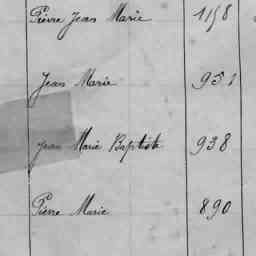 Pierre Jean Marie 1158
Jean Marie 951
Jean Marie Baptiste 938
Pierre Marie 890